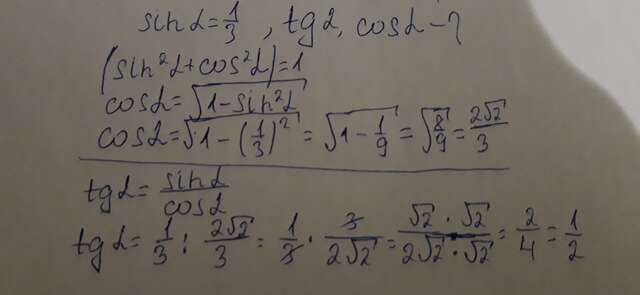 sin α = 1/3, tg α, cos α - ?
(sin²α + cos²α) = 1
cos α = √(1 - sin²α)
cos α = √(1 - (1/3)²) = √(1 - 1/9) = √(8/9) = 2√2/3
tg α = sin α/cos α
tg α = 1/3 : 2√2/3 = 1/3 · 3/2√2 = √2 · √2/2√2 · √2 = 2/4 = 1/2